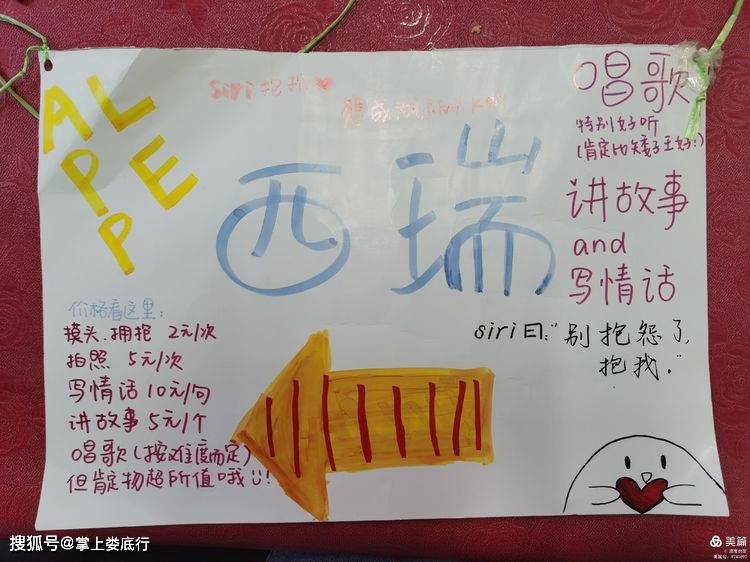 APPLE
siri 抱我
西瑞
唱歌
特别好听
(肯定比矮子王好!)
讲故事
and
写情话
siri曰:“别抱怨了,
抱我."
价格看这里:
摸头.拥抱 2元/次
拍照 5元/次
写情话10元/句
讲故事5元/个
唱歌(按难度而定)
但肯定物超所值哦!
搜狐号@掌上娄底行
美篇